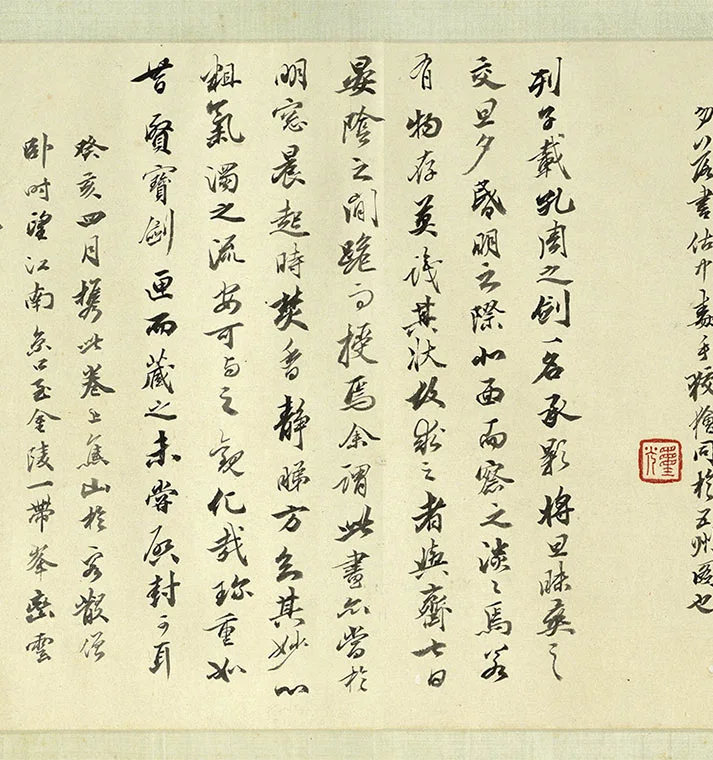 書估廾
同於五州
也
墨
列子載孔周之劍一名承影將旦昧爽之
交旦夕昏明之際北面而察之淡淡焉若
有物存莫識其狀故求之者與齋七日
晏陰之間跪而授焉余謂此畫亦當於
明窓晨起時焚香靜睇方知其妙心
粗氣濁之流安可与之觀化哉珎重如
昔賢寶劍匣而藏之未嘗啟封可耳
癸亥四月攜此卷上焦山於客散僧
卧時望江南京口至金陵一帶峯巒雲